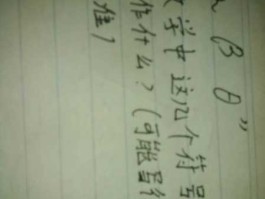 β θ"
学中这几个符号
作什么？（可能写
准）